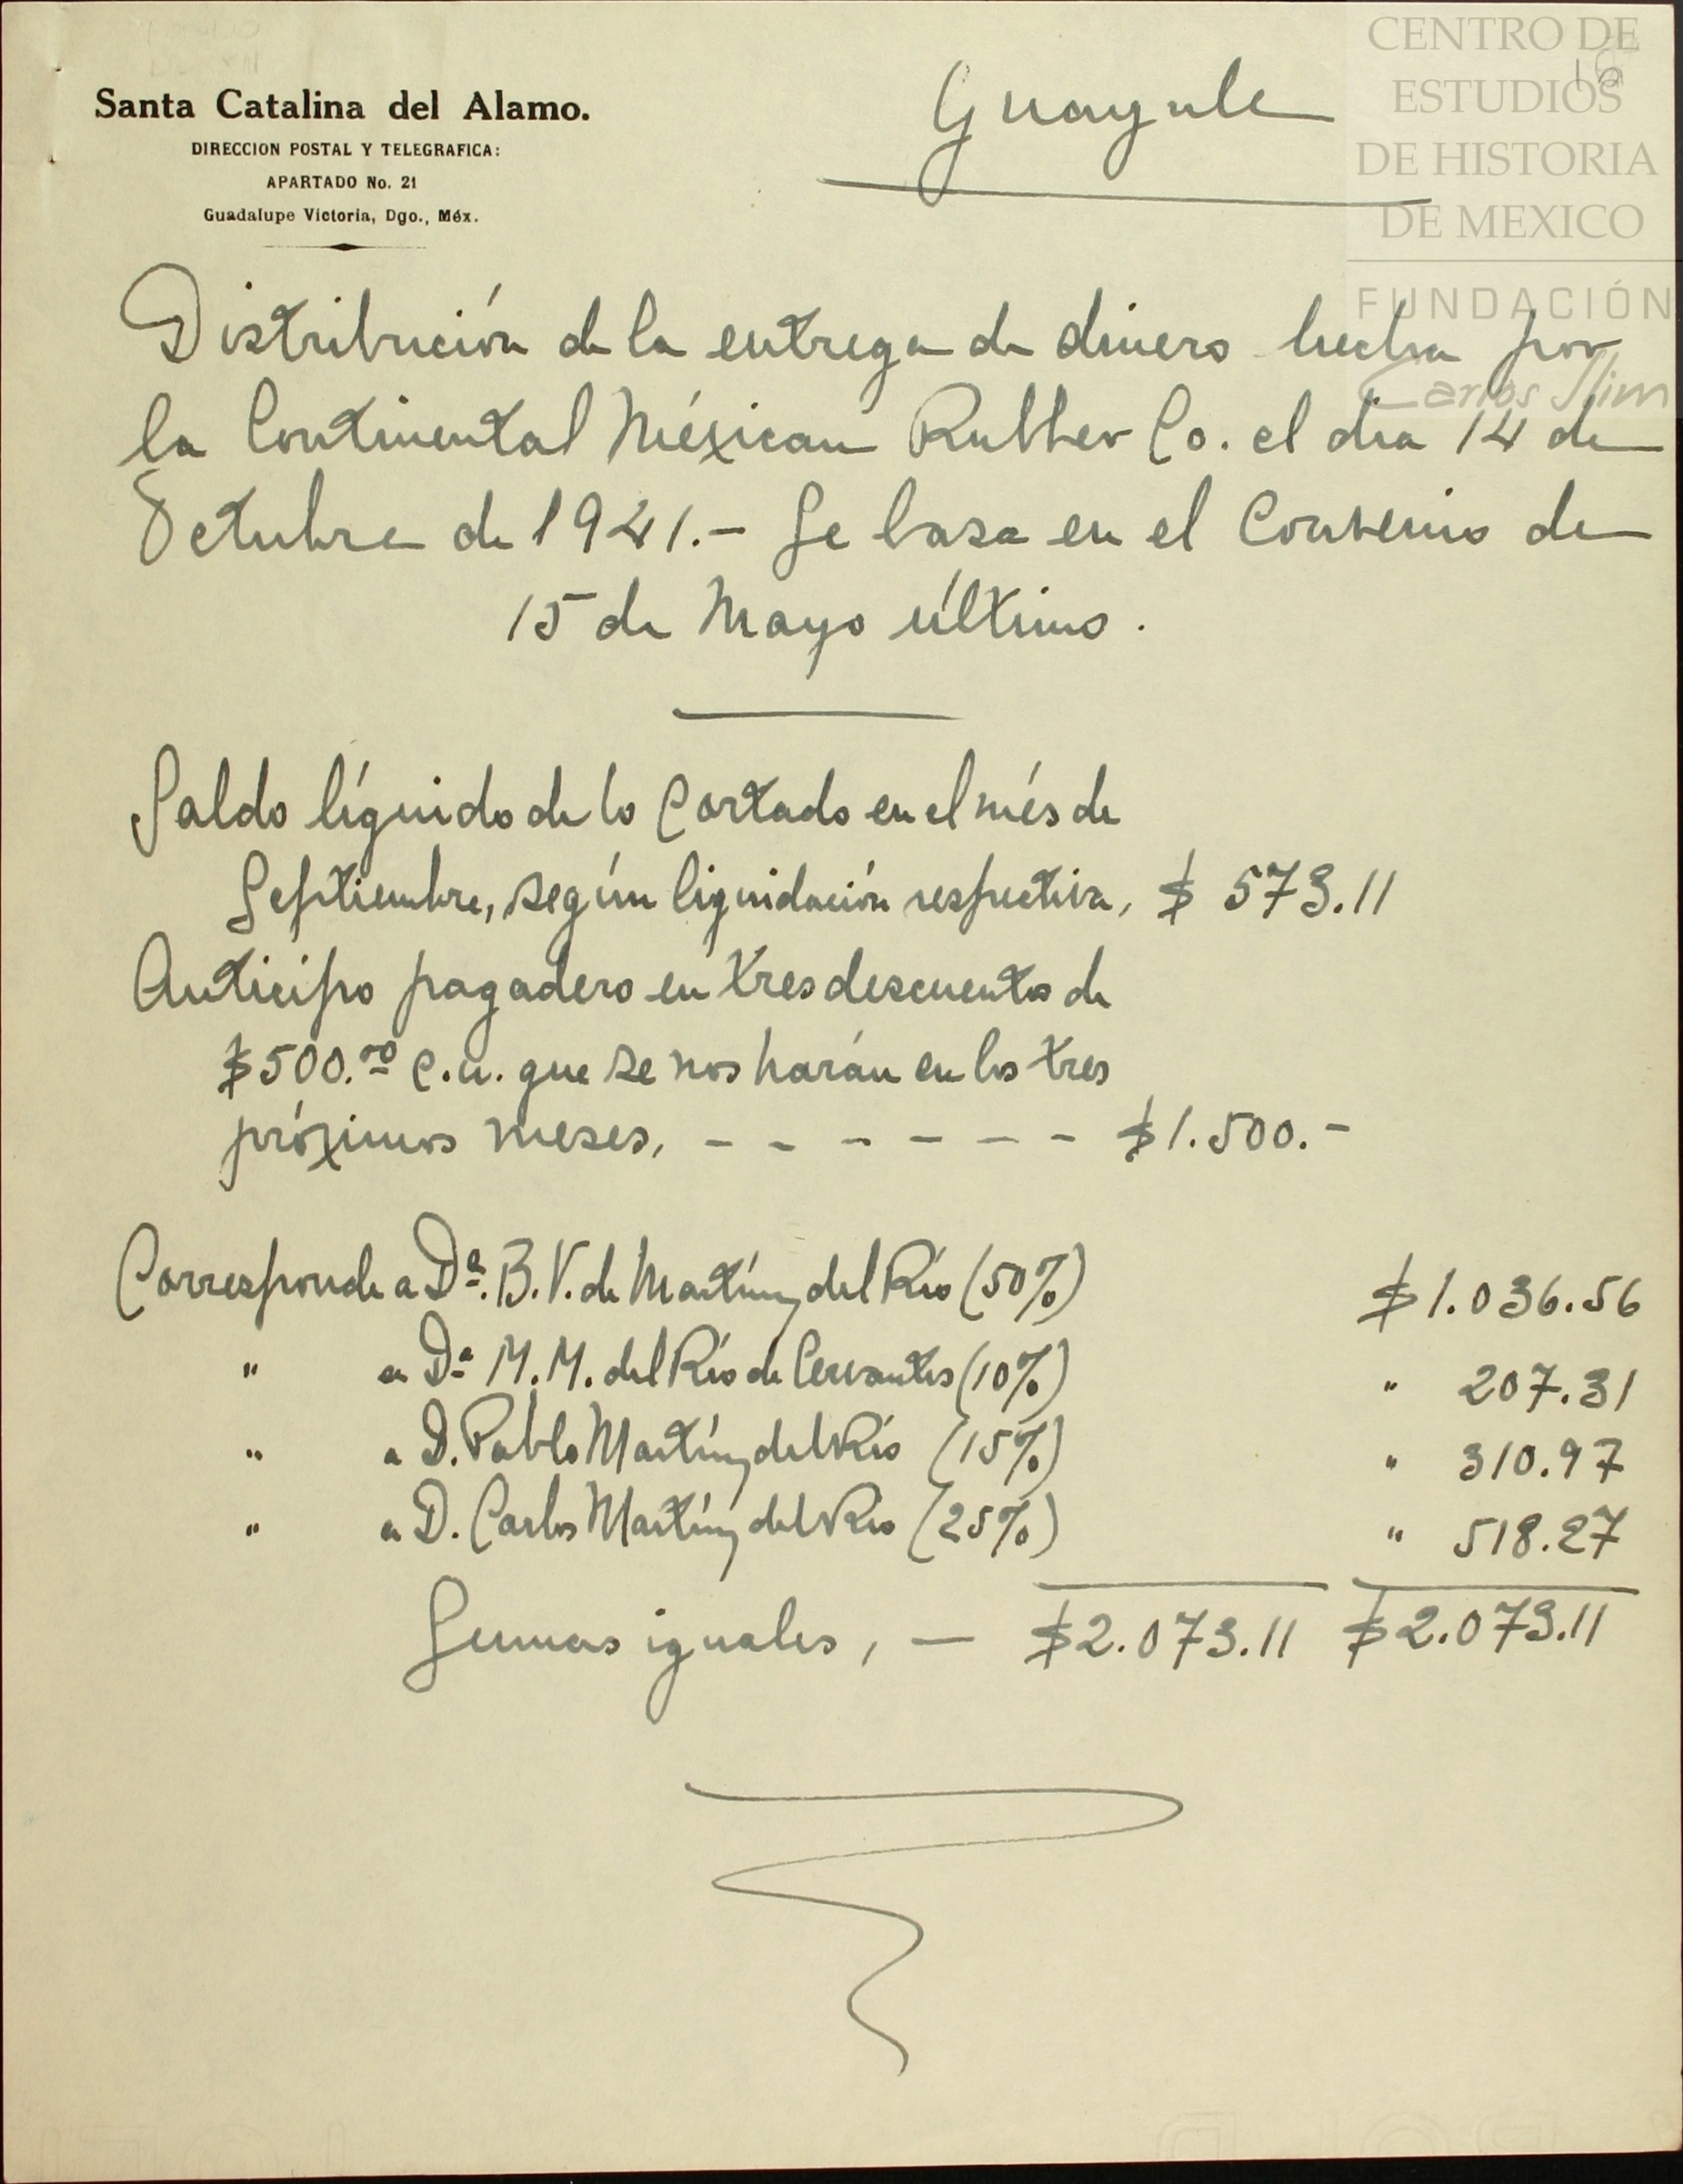 Santa Catalina del Alamo.
DIRECCION POSTAL Y TELEGRAFICA:
APARTADO No. 21
Guadalupe Victoria, Dgo., Méx.
Guayule
CENTRO DE
ESTUDIOS
DE HISTORIA
DE MEXICO
FUNDACIÓN
Carlos Slim
Distribución de la entrega de dinero hecha por
la Continental Méxican Rubber Co. el dia 14 de
Octubre de 1941.- Se basa en el Convenio de
15 de Mayo último.
Saldo líquido de lo Cortado en el més de
Septiembre, según liquidación respectiva, $ 573.11
Anticipo pagadero en tres descuentos de
$500.00 c.u. que se nos harán en los tres
próximos meses, - - - - - - $1.500.-
Corresponde a Da. B. V. de Martínez del Río (50%) $1.036.56
" a Da M. M. del Río de Cervantes (10%) " 207.31
" a D. Pablo Martínez del Río (15%) " 310.97
" a D. Carlos Martínez del Río (25%) " 518.27
Sumas iguales, — $2.073.11 $2.073.11